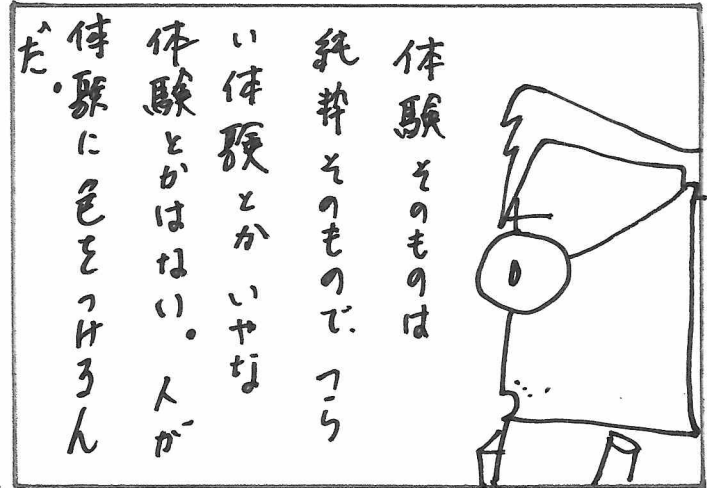 体験そのものは
純粋そのもので、つら
い体験とか いやな
体験とかはない。人が
体験に色をつけるん
だ。